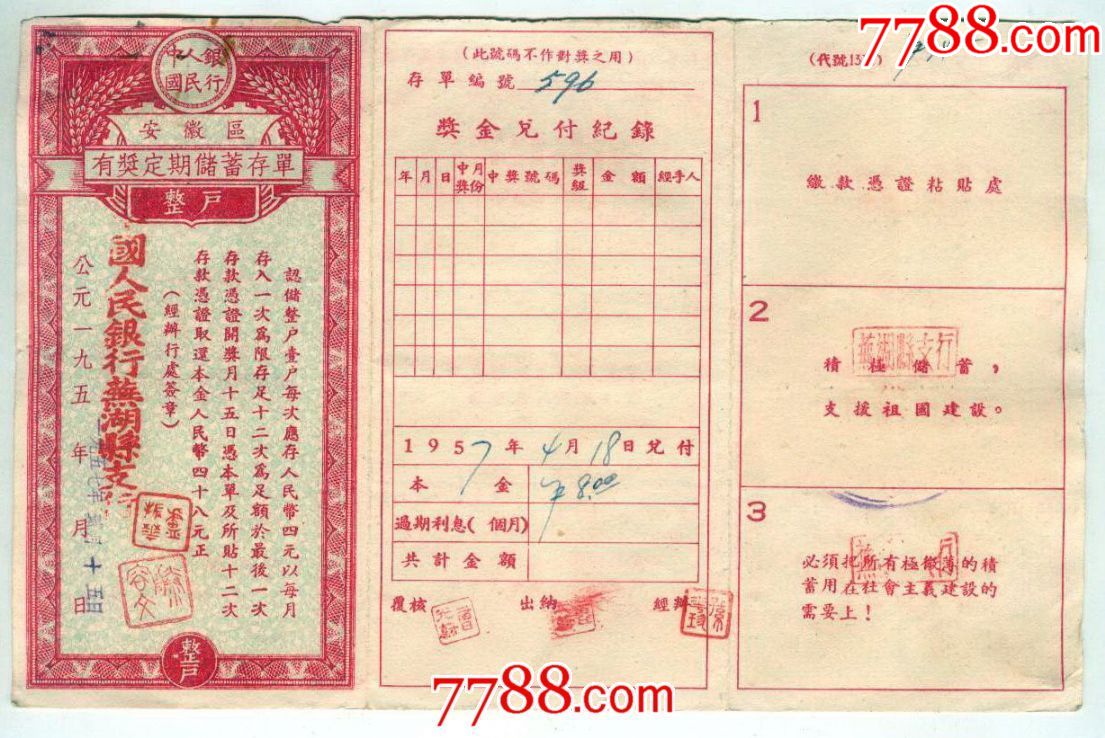 7788.com
中人銀
國民行
安徽區
有獎定期儲蓄存單
整戶
認儲整戶壹戶每次應存人民幣四元以每月
存入一次爲限存足十二次爲足額於最後一次
存款憑證開獎月十五日憑本單及所貼十二次
存款憑證取還本金人民幣四十八元正
(經辦行處簽章)
國人民銀行蕪湖縣支行
公元一九五 年 月 日
整戶
(此號碼不作對獎之用)
存單編號 596
獎金兌付紀錄
年 月 日 中獎月份 中獎號碼 獎組 金額 經手人
1957年4月18日兌付
本金 ¥8.00
過期利息( 個月)
共計金額
覆核 出納 經辦
(代號13
1
繳款憑證粘貼處
2
蕪湖縣支行
積極儲蓄,
支援祖國建設。
3
必須把所有極微薄的積
蓄用在社會主義建設的
需要上!
7788.com